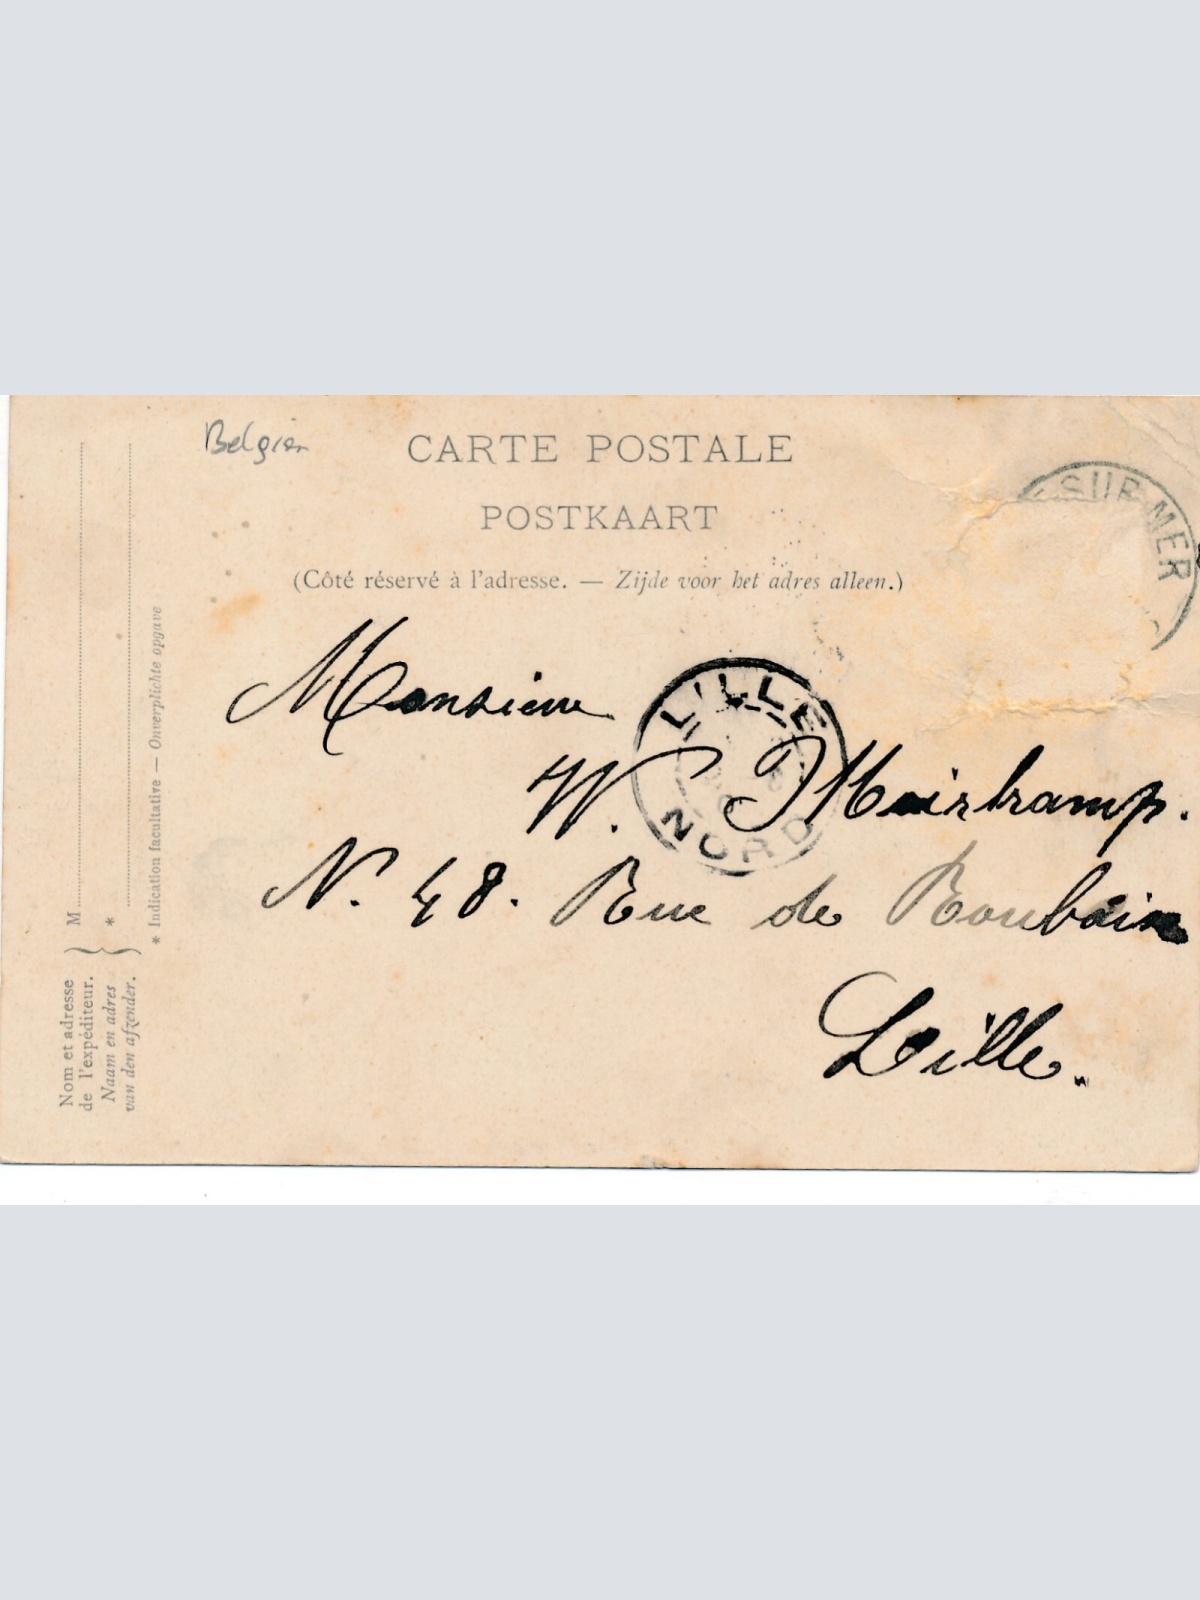 Belgien
CARTE POSTALE
POSTKAART
(Côté réservé à l'adresse. — Zijde voor het adres alleen.)
SUR MER
Monsieur
LILLE
NORD
W.
N. 48. Rue de Roubaix
Lille.
Nom et adresse
de l'expéditeur.
Naam en adres
van den afzender.
M
*
* Indication facultative — Onverplichte opgave